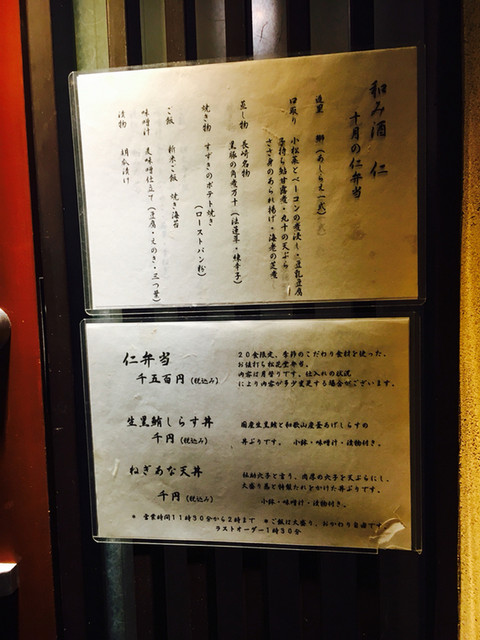 和み酒 仁
十月の仁弁当
造里 鰤(あしらえ一式)
口取り 小松菜とベーコンの煮浸し・豆乳豆腐
子持ち鮎甘露煮・丸十の天ぷら
ささ身のあられ揚げ・海老の芝煮
蒸し物 長崎名物
黒豚の角煮万十(法蓮草・練辛子)
焼き物 すずきのポテト焼き
(ローストパン粉)
ご飯 新米ご飯 焼き海苔
味噌汁 麦味噌仕立て(豆腐・えのき・三つ葉)
漬物 胡瓜漬け
仁弁当
千五百円(税込み)
20食限定。季節のこだわり食材を使った、
お値打ち松花堂弁当。
内容は月替りです。仕入れの状況
により内容が多少変更する場合がございます。
生黒鮪しらす丼
千円(税込み)
国産生黒鮪と和歌山産釜あげしらすの
丼ぶりです。 小鉢・味噌汁・漬物付き。
ねぎあな天丼
千円(税込み)
伝助穴子と言う、肉厚の穴子を天ぷらにし、
大盛り葱と特製たれをかけた丼ぶりです。
小鉢・味噌汁・漬物付き。
* 営業時間11時30分から2時まで *ご飯は大盛り、おかわり自由です
ラストオーダー1時30分